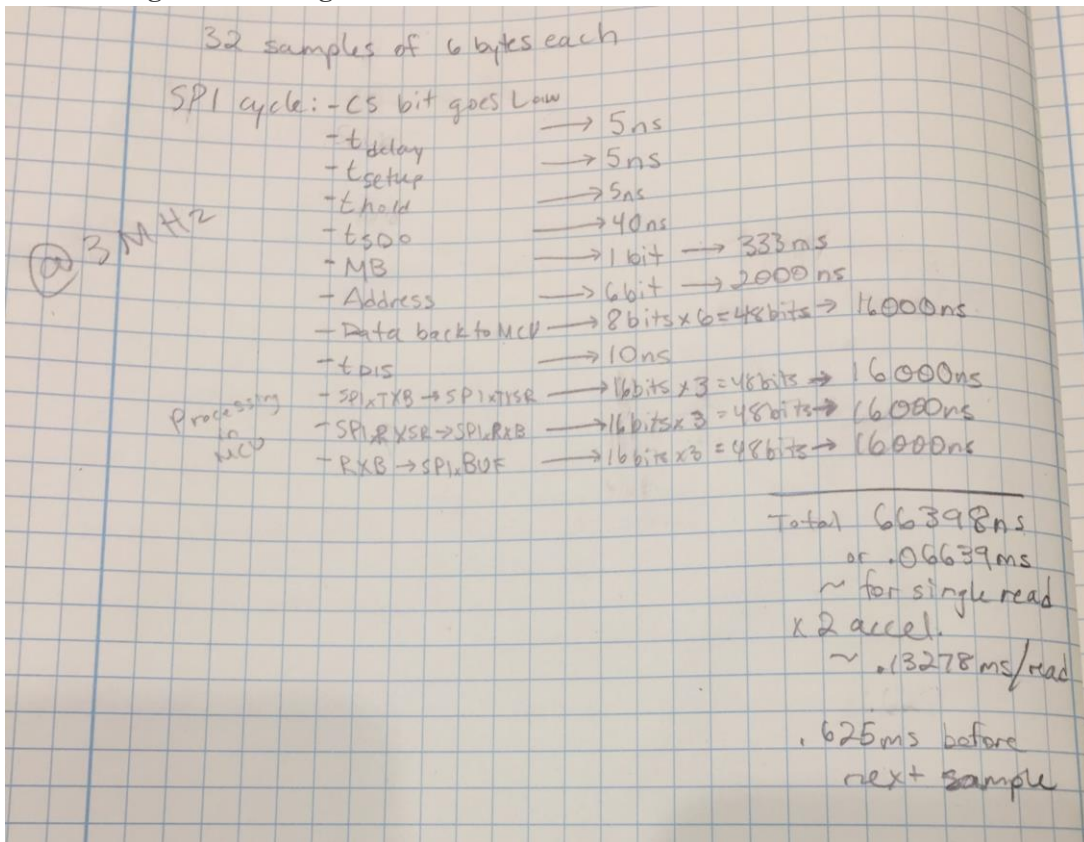 32 samples of 6 bytes each
SPI cycle: - CS bit goes Low
- t delay → 5ns
- t setup → 5ns
- t hold → 5ns
- t SDO → 40ns
@ 3 MHz
- MB → 1 bit → 333ns
- Address → 6bit → 2000ns
- Data back to MCU → 8bits x 6 = 48bits → 16000ns
- t DIS → 10ns
Processing in MCU
- SPIxTXB → SPIxTXSR → 16bits x 3 = 48bits → 16000ns
- SPIxRXSR → SPIxRXB → 16bits x 3 = 48bits → 16000ns
- RXB → SPIxBUF → 16bits x 3 = 48bits → 16000ns
Total 66398ns
or .06639ms
~ for single read
x 2 accel.
~ .13278ms/read
.625ms before
next sample